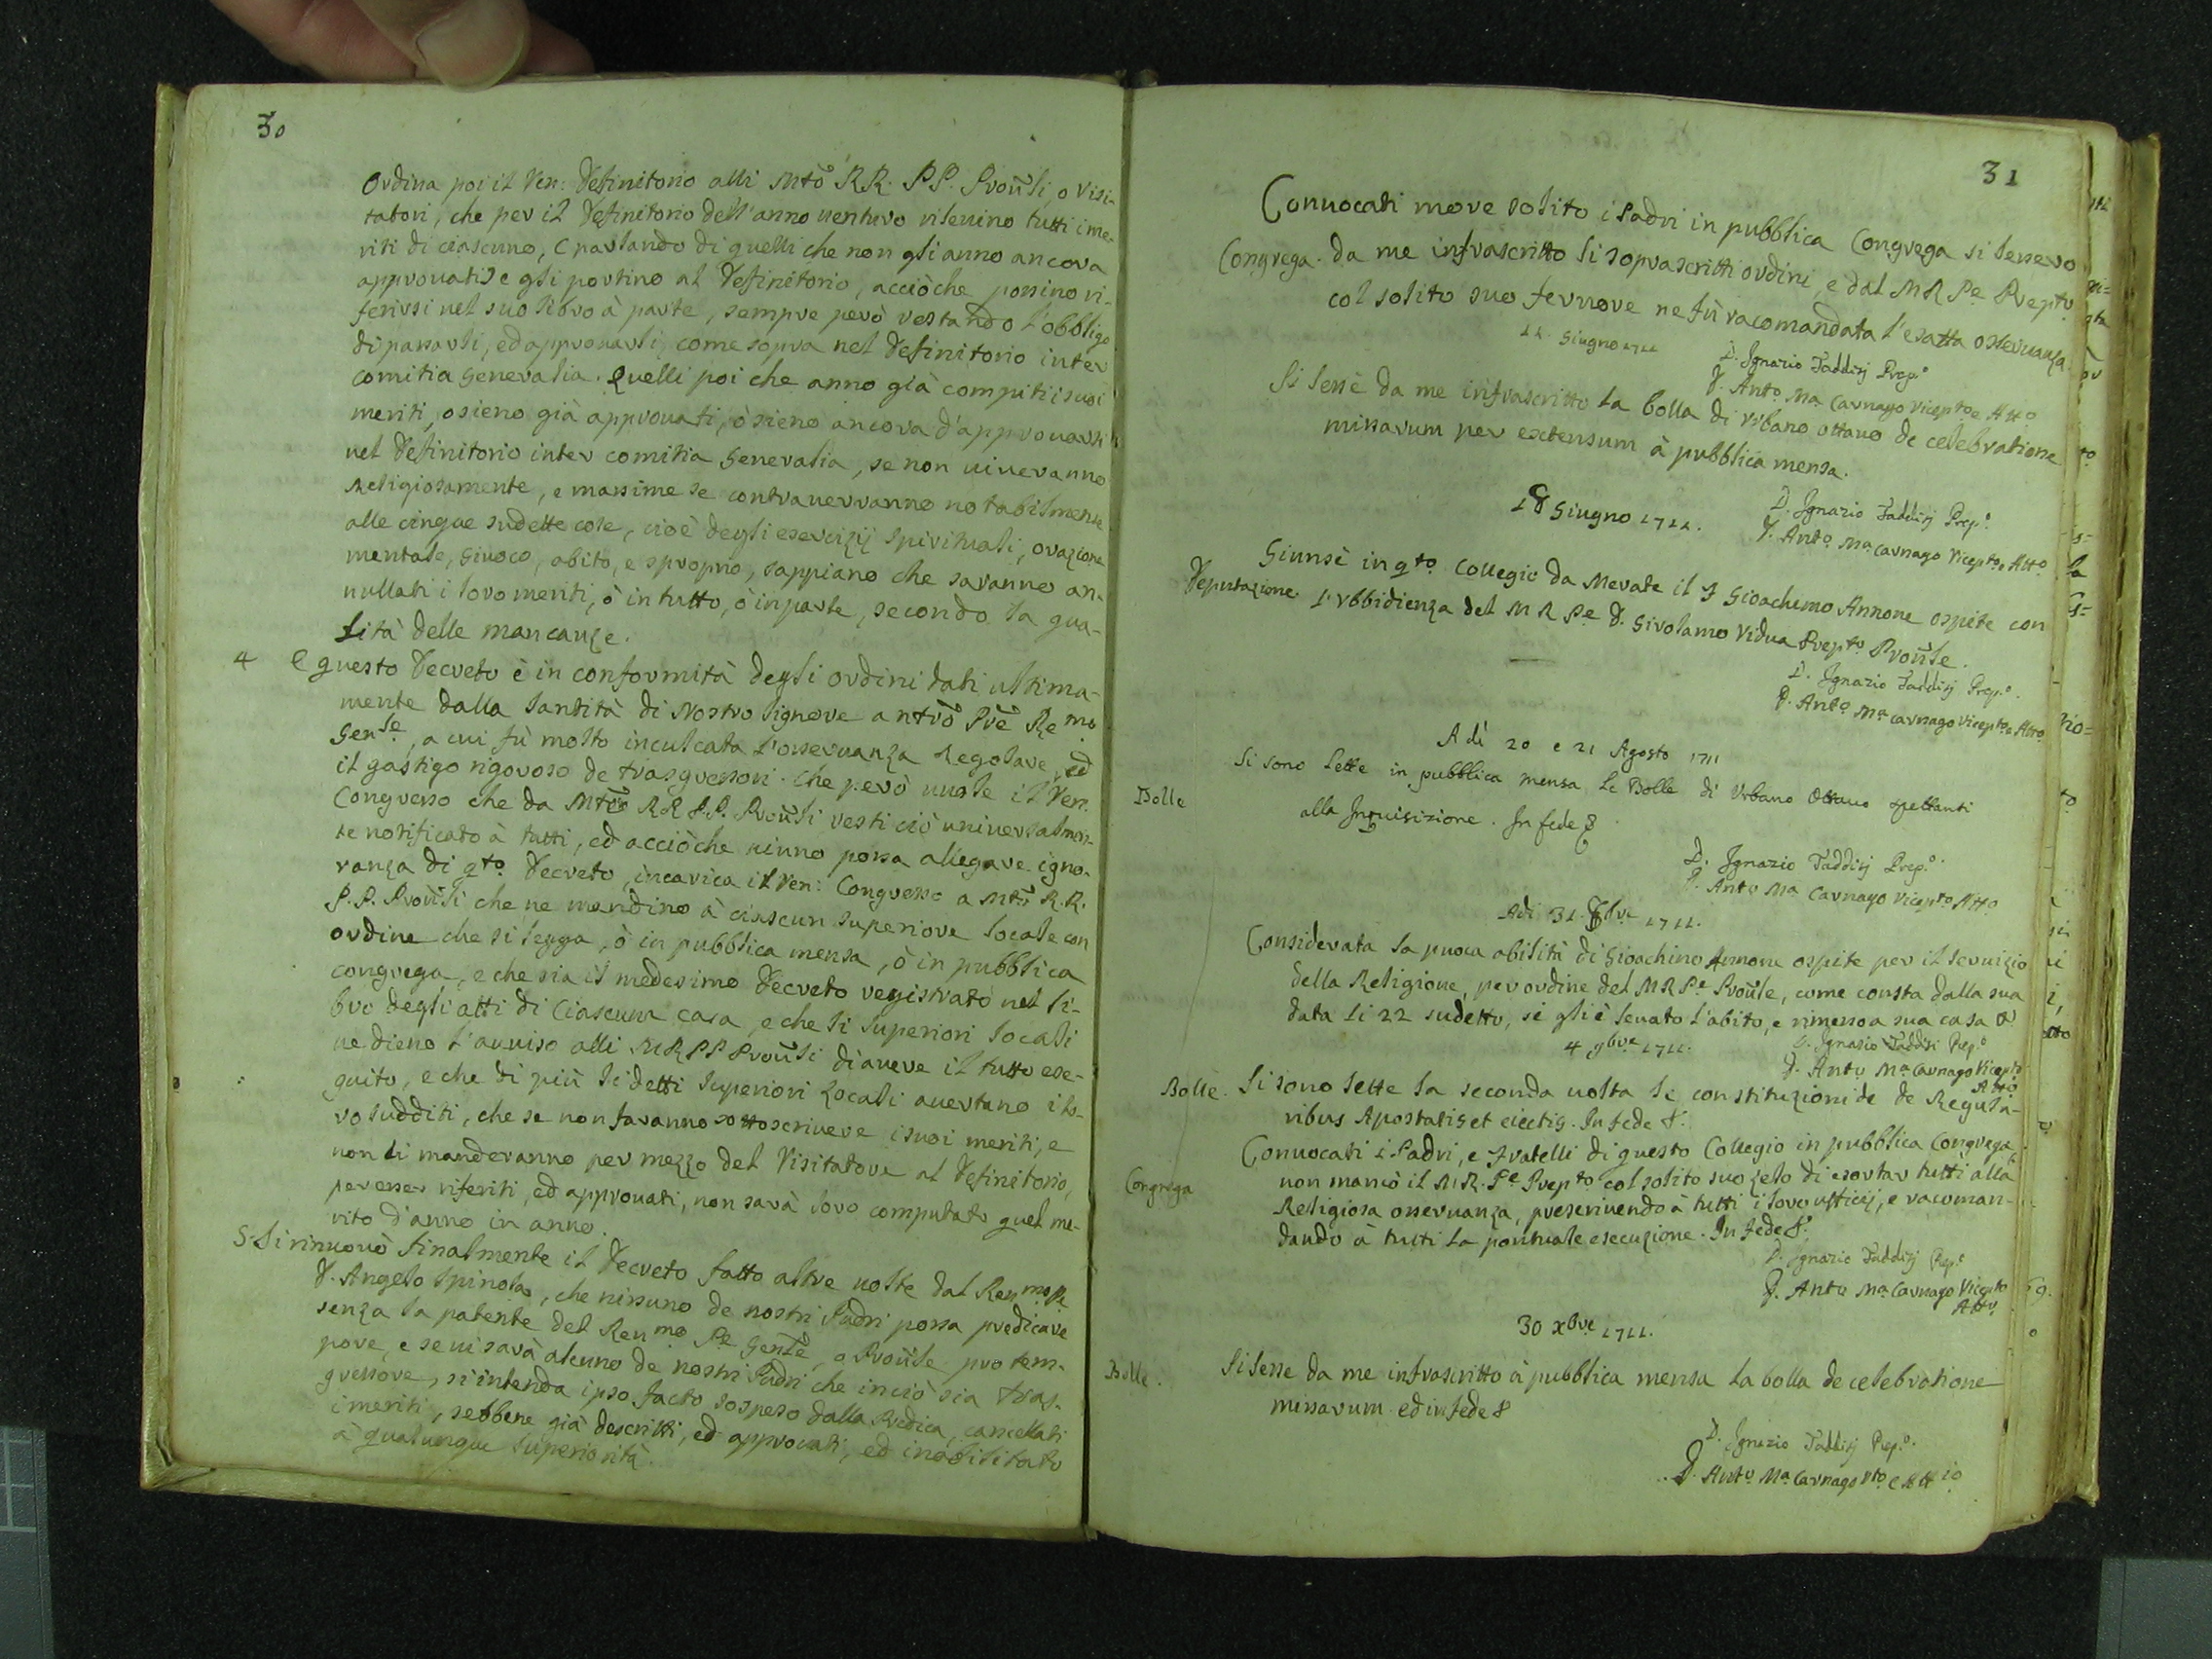 30
Ordina poi il Ven: Definitorio alli Mtõ RR. PP. Proũli, o Visi-
tatori, che per il Definitorio dell'anno venturo rilevino tutti i me-
riti di ciascuno, (parlando di quelli che non gli anno ancora
approuati) e gli portino al Definitorio, acciòche possino ri-
ferirsi nel suo libro à parte, sempre però restando l'obbligo
di passarli, ed approuarli, come sopra nel Definitorio inter
comitia generalia. Quelli poi che anno già compiti i suoi
meriti, o sieno già approuati, ò sieno ancora d'approuarsi
nel Definitorio inter comitia generalia, se non uiueranno
Religiosamente, e massime se contrauerranno notabilmente
alle cinque sudette cose, cioè degli esercizij spirituali, orazione
mentale, giuoco, abito, e sproprio, sappiano che saranno an-
nullati i loro meriti, ò in tutto, ò in parte, secondo la qua-
lità delle mancanze.
4 E questo Decreto è in conformità degli ordini dati ultima-
mente dalla Santità di Nostro Signore a ntrõ Prẽ Remo
Genle, a cui fù molto inculcata l'osseruanza Regolare, ed
il gastigo rigoroso de trasgressori. Che però uuole il Ven.
Congresso che da Mtõ RR PP. Proũli resti ciò uniuersalmen-
te notificato à tutti, ed acciòche niuno possa allegare igno-
ranza di qto Decreto, incarica il Ven: Congresso a Mtõ R.R.
P.P. Proũli che ne mandino à ciascun Superiore locale con
ordine che si legga, ò in pubblica mensa, ò in pubblica
congrega, e che sia il medesimo Decreto registrato nel li-
bro degli atti di Ciascuna casa, e che li Superiori locali
ne dieno l'auuiso alli MRPP Proũli d'auere il tutto ese-
guito, e che di più li detti Superiori Locali auertano i lo-
ro sudditi, che se non faranno sottoscriuere i suoi meriti, e
non li manderanno per mezzo del Visitatore al Definitorio,
per esser riferiti, ed approuati, non sarà loro computato quel me-
rito d'anno in anno.
5. Si rinnouò finalmente il Decreto fatto altre uolte dal Reumo Pe
D. Angelo Spinola, che nissuno de nostri Padri possa predicare
senza la patente del Reumo Pe Genle, o Proũle pro tem-
pore, e se ui sarà alcuno de nostri Padri che in ciò sia tras-
gressore, s'intenda ipso facto sospeso dalla Predica, cancellati
i meriti, sebbene già descritti, ed approuati, ed inabilitato
à qualunque Superiorità.
31
Conuocati more solito i Padri in pubblica Congrega si lessero
Congrega. da me infrascritto li soprascritti ordini, e dal MR Pe Prepto
col solito suo feruore ne fù racomandata l'esatta osseruanza.
11. Giugno 1711
D. Ignazio Taddisj Prep.o
D. Anto Ma Carnago Vicepto e Atto
Si lesse da me infrascritto la bolla di Urbano ottauo de celebratione
missarum per extensum à pubblica mensa.
18 Giugno 1711.
D. Ignazio Taddisj Prep.o
D. Anto Ma Carnago Vicepto e Atto
Giunse in qto Collegio da Merate il F Gioachimo Annone ospite con
Deputazione. l'Ubbidienza del M R Pe D. Girolamo Vidua Prepto Proũle.
D. Ignazio Taddisj Prep.o
D. Anto Ma Carnago Vicepto e Atto
A dì 20 e 21 Agosto 1711
Bolle Si sono lette in pubblica mensa le Bolle di Urbano Ottauo spettanti
alla Inquisizione. In fede &
D. Ignazio Taddisj Prep.o
D. Anto Ma Carnago Vicepto Atto
Adi 31. 8bre 1711.
Considerata la puoca abilità di Gioachino Annone ospite per il seruizio
della Religione, per ordine del MR Pe Proũle, come consta dalla sua
data li 22 sudetto, se gli è leuato l'abito, e rimesso a sua casa &
4 9bre 1711.
D. Ignazio Taddisi Prep.o
D. Anto Ma Carnago Vicepto
Atto
Bolle. Si sono lette la seconda uolta le constituzioni de de Regula-
ribus Apostatis et eiectis. In fede &.
Conuocati i Padri, e Fratelli di questo Collegio in pubblica Congrega,
Congrega non mancò il M.R. Pe Prepto col solito suo zelo di esortar tutti alla
Religiosa osseruanza, prescriuendo à tutti i loro ufficij, e racoman-
dando à tutti la pontuale esecuzione. In fede &.
D. Ignazio Taddisj Prep.o
D. Anto Ma Carnago Vicepto
Atto
30 Xbre 1711.
Bolle. Si lesse da me infrascritto à pubblica mensa la bolla de celebratione
missarum ed in fede &
D. Ignazio Taddisj Prep.o
D. Anto Ma Carnago Vto e Attio